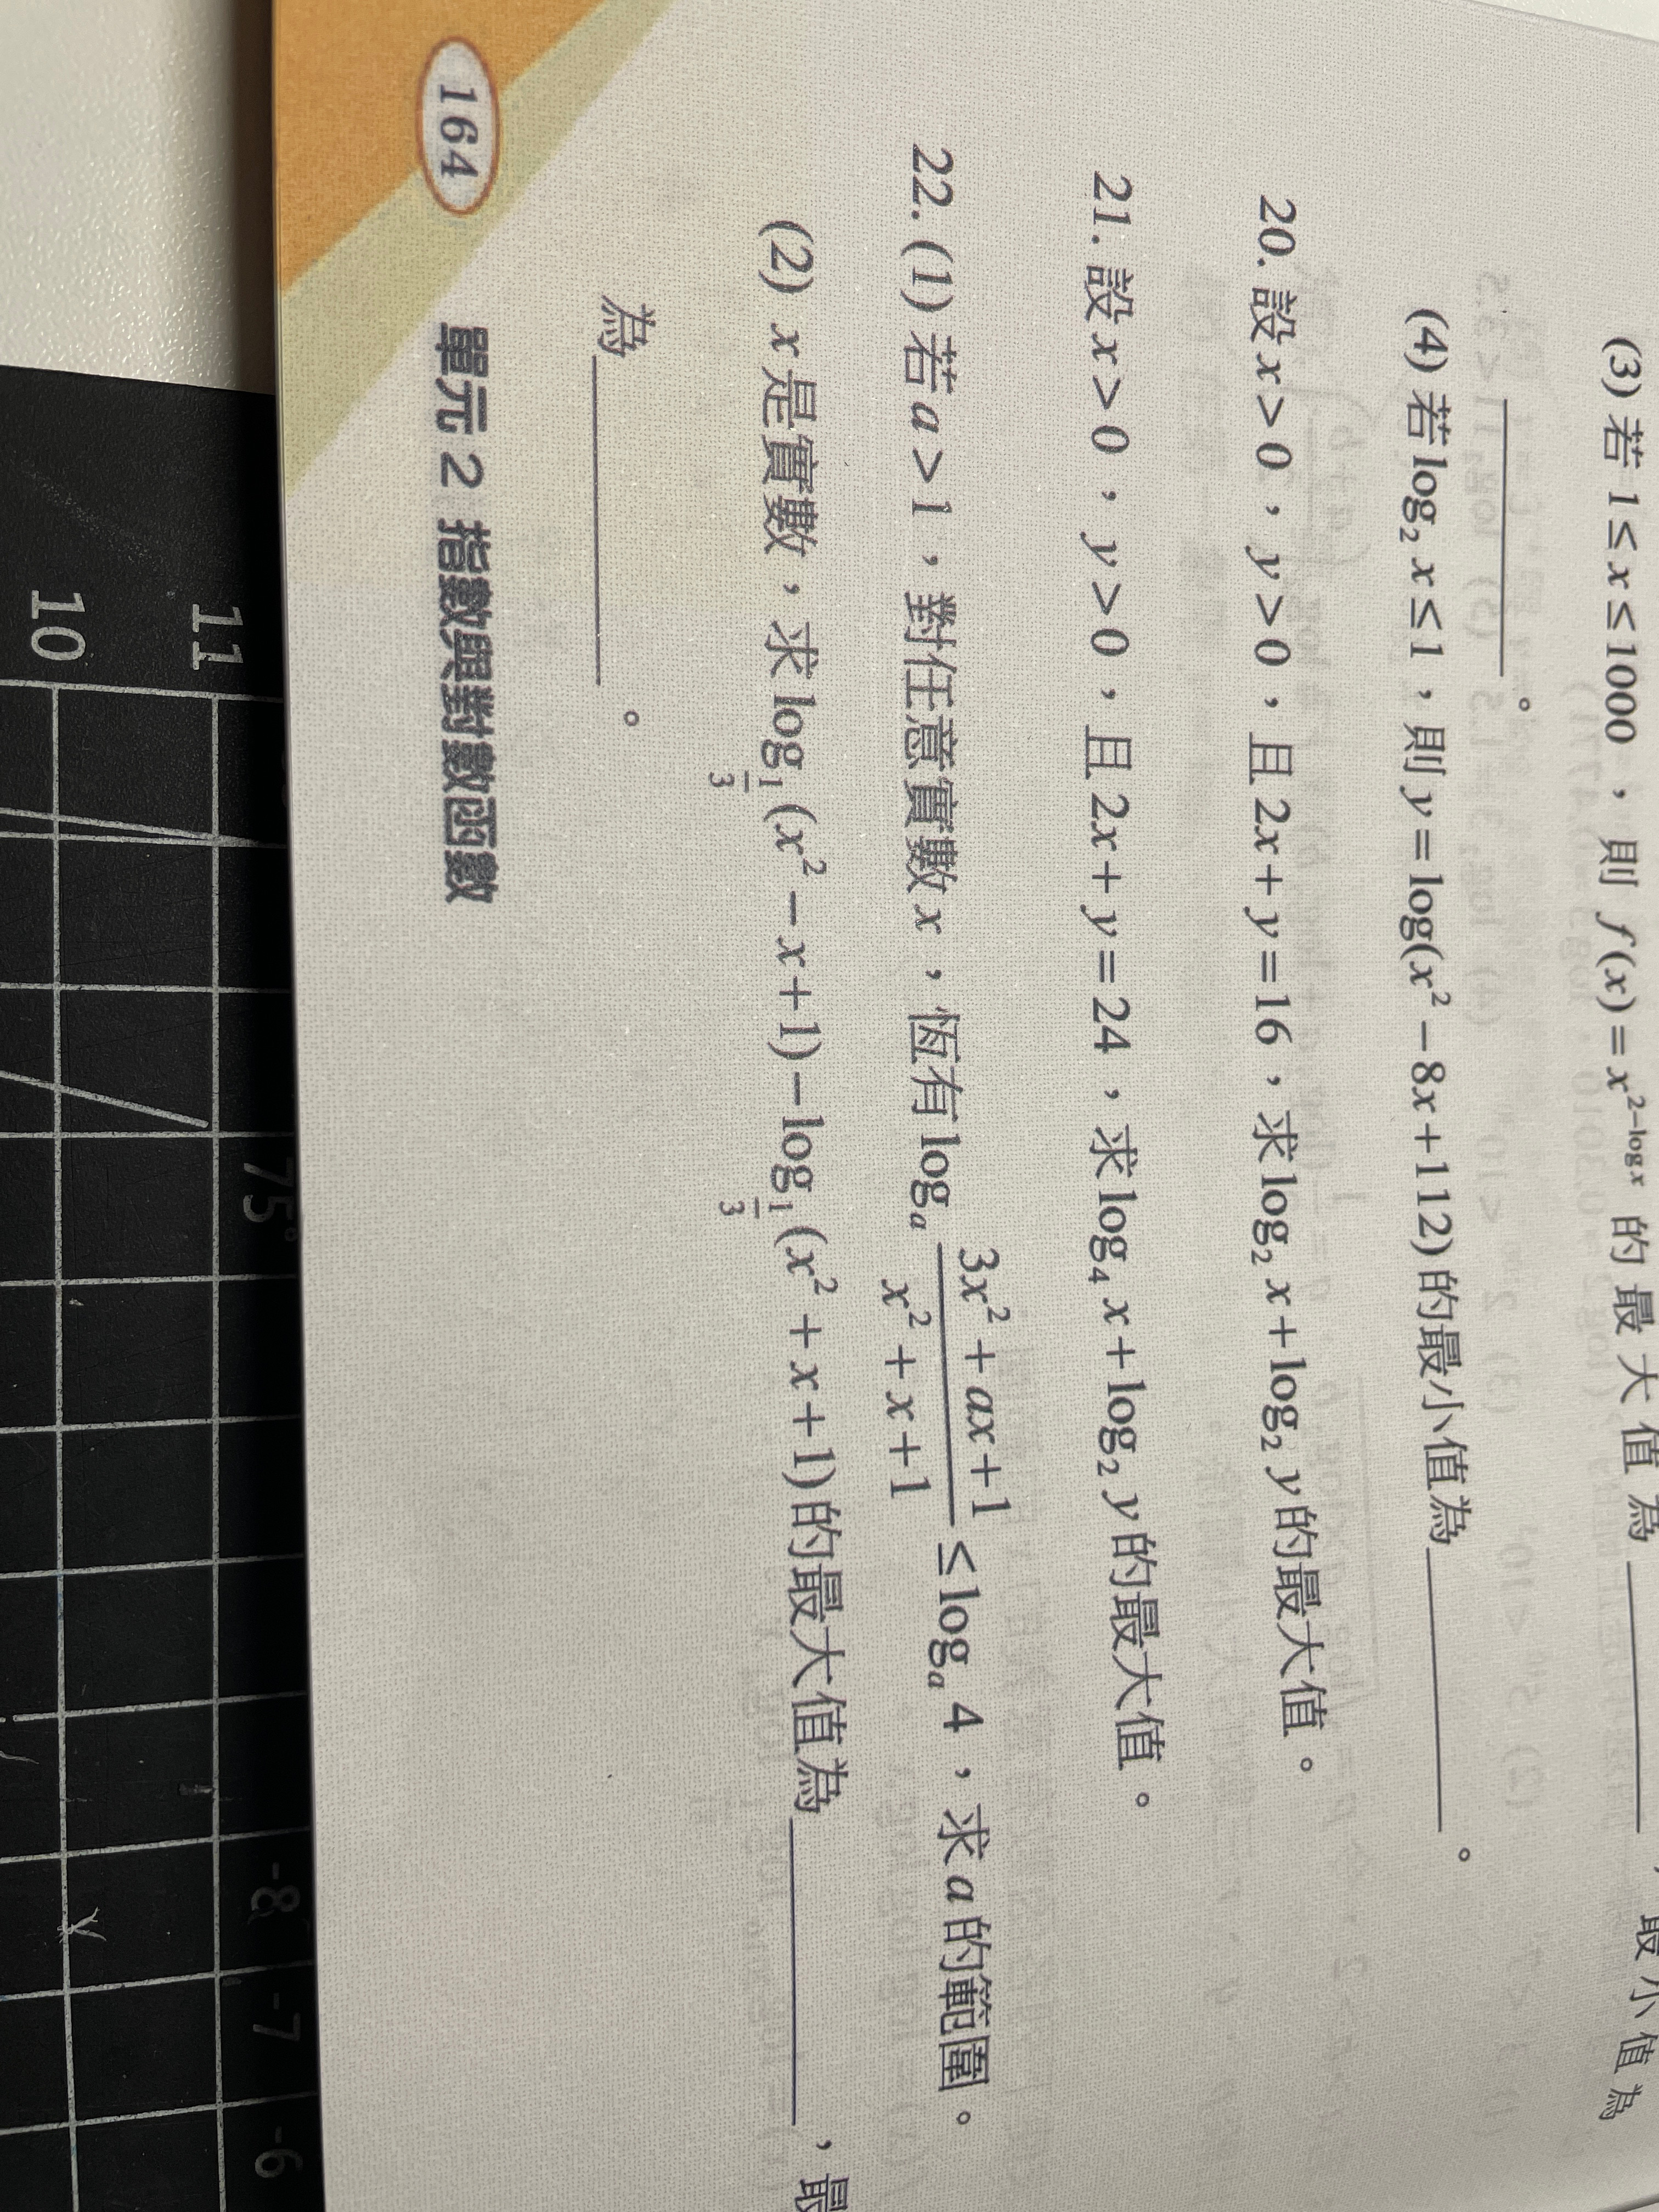 (3) 若 1≤x≤1000，則 f(x)=x^{2-log x} 的最大值為________，最小值為
________。
(4) 若 log₂ x≤1，則 y=log(x²−8x+112) 的最小值為________。
20. 設 x>0，y>0，且 2x+y=16，求 log₂ x+log₂ y 的最大值。
21. 設 x>0，y>0，且 2x+y=24，求 log₄ x+log₂ y 的最大值。
22. (1) 若 a>1，對任意實數 x，恆有 logₐ \frac{3x²+ax+1}{x²+x+1} ≤ logₐ 4，求 a 的範圍。
(2) x 是實數，求 log_{\frac{1}{3}}(x²−x+1)−log_{\frac{1}{3}}(x²+x+1) 的最大值為________，最
為________。
164 單元 2 指數與對數函數
11
10
75°
-8
-7
-6